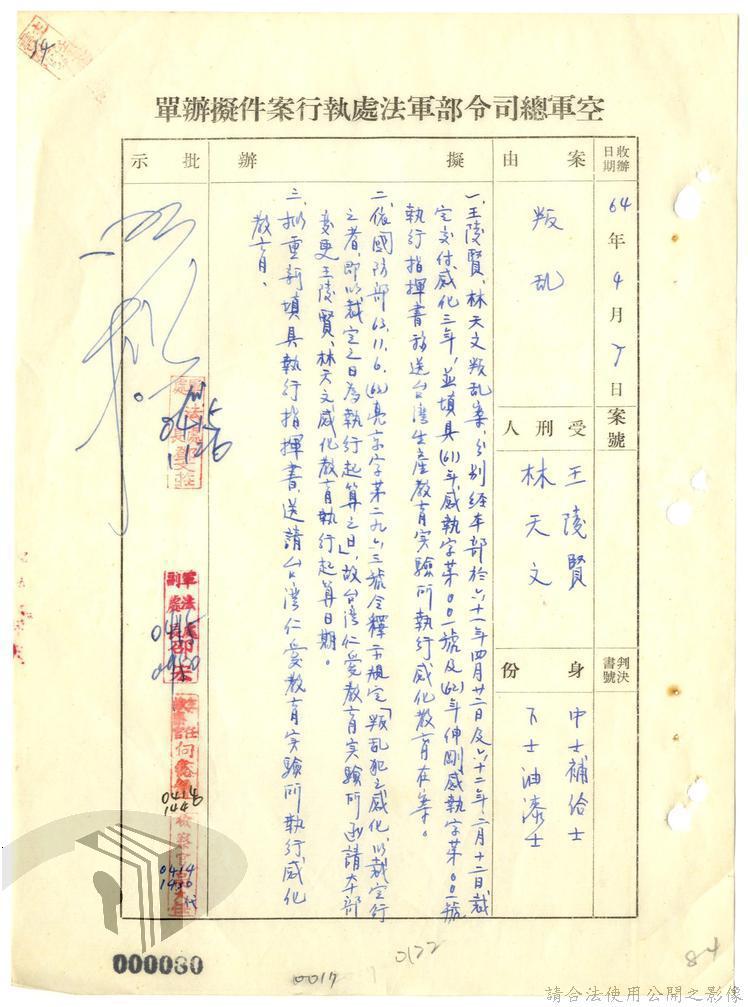 空軍總司令部軍法處執行案件擬辦單
收辦日期
64年4月 日
案號
判決書號
案由
叛乱
受刑人
王陵賢
林天文
身份
中士補給士
下士油漆士
擬辦
一、王陵賢、林天文叛乱案，分別经本部於六十一年四月廿二日及六十二年二月十二日裁
定交付感化三年，並填具(61)年感執字第00一號及(62)年伸剛感執字第00二號
執行指揮書移送台湾生產教育实驗所執行感化教育在案。
二、依國防部63.11.6.(63)亮京字第二九六三號令釋示規定「叛乱犯之感化，以裁定行
之者，即以裁定之日為執行起算之日」，故台湾仁愛教育实驗所函請本部
变更王陵賢、林天文感化教育執行起算日期。
三、拟重新填具執行指揮書，送請台湾仁爱教育实驗所執行感化
教育。
批示
0415
1120
軍法處副處長
0415
0950
0414
1440
檢察官
0414
1430
代
000080
0017
0122
84
請合法使用公開之影像